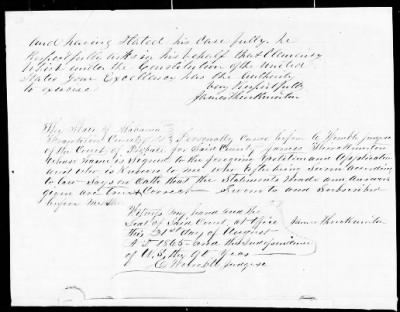 And having Stated his Case fully he
Respectfully asks in his behalf that Clemency
which under the Constitution of the United
States your Excellency has the Authority
to exercise
Very Respectfully
James
The State of Alabama
County Personally Came before me Judge
of the Court of Probate for Said County James
whose name is signed to the foregoing Petition and Application
and who is Known to me who after being Sworn according
to law Says on Oath that the Statements made and answers
given are true & Correct Sworn to and Subscribed
before me
Witness my hand and the
Seal of Said Court, at office James
this 21st day of August
A D 1865 and the Independence
of U. S. the 90 year
Judge